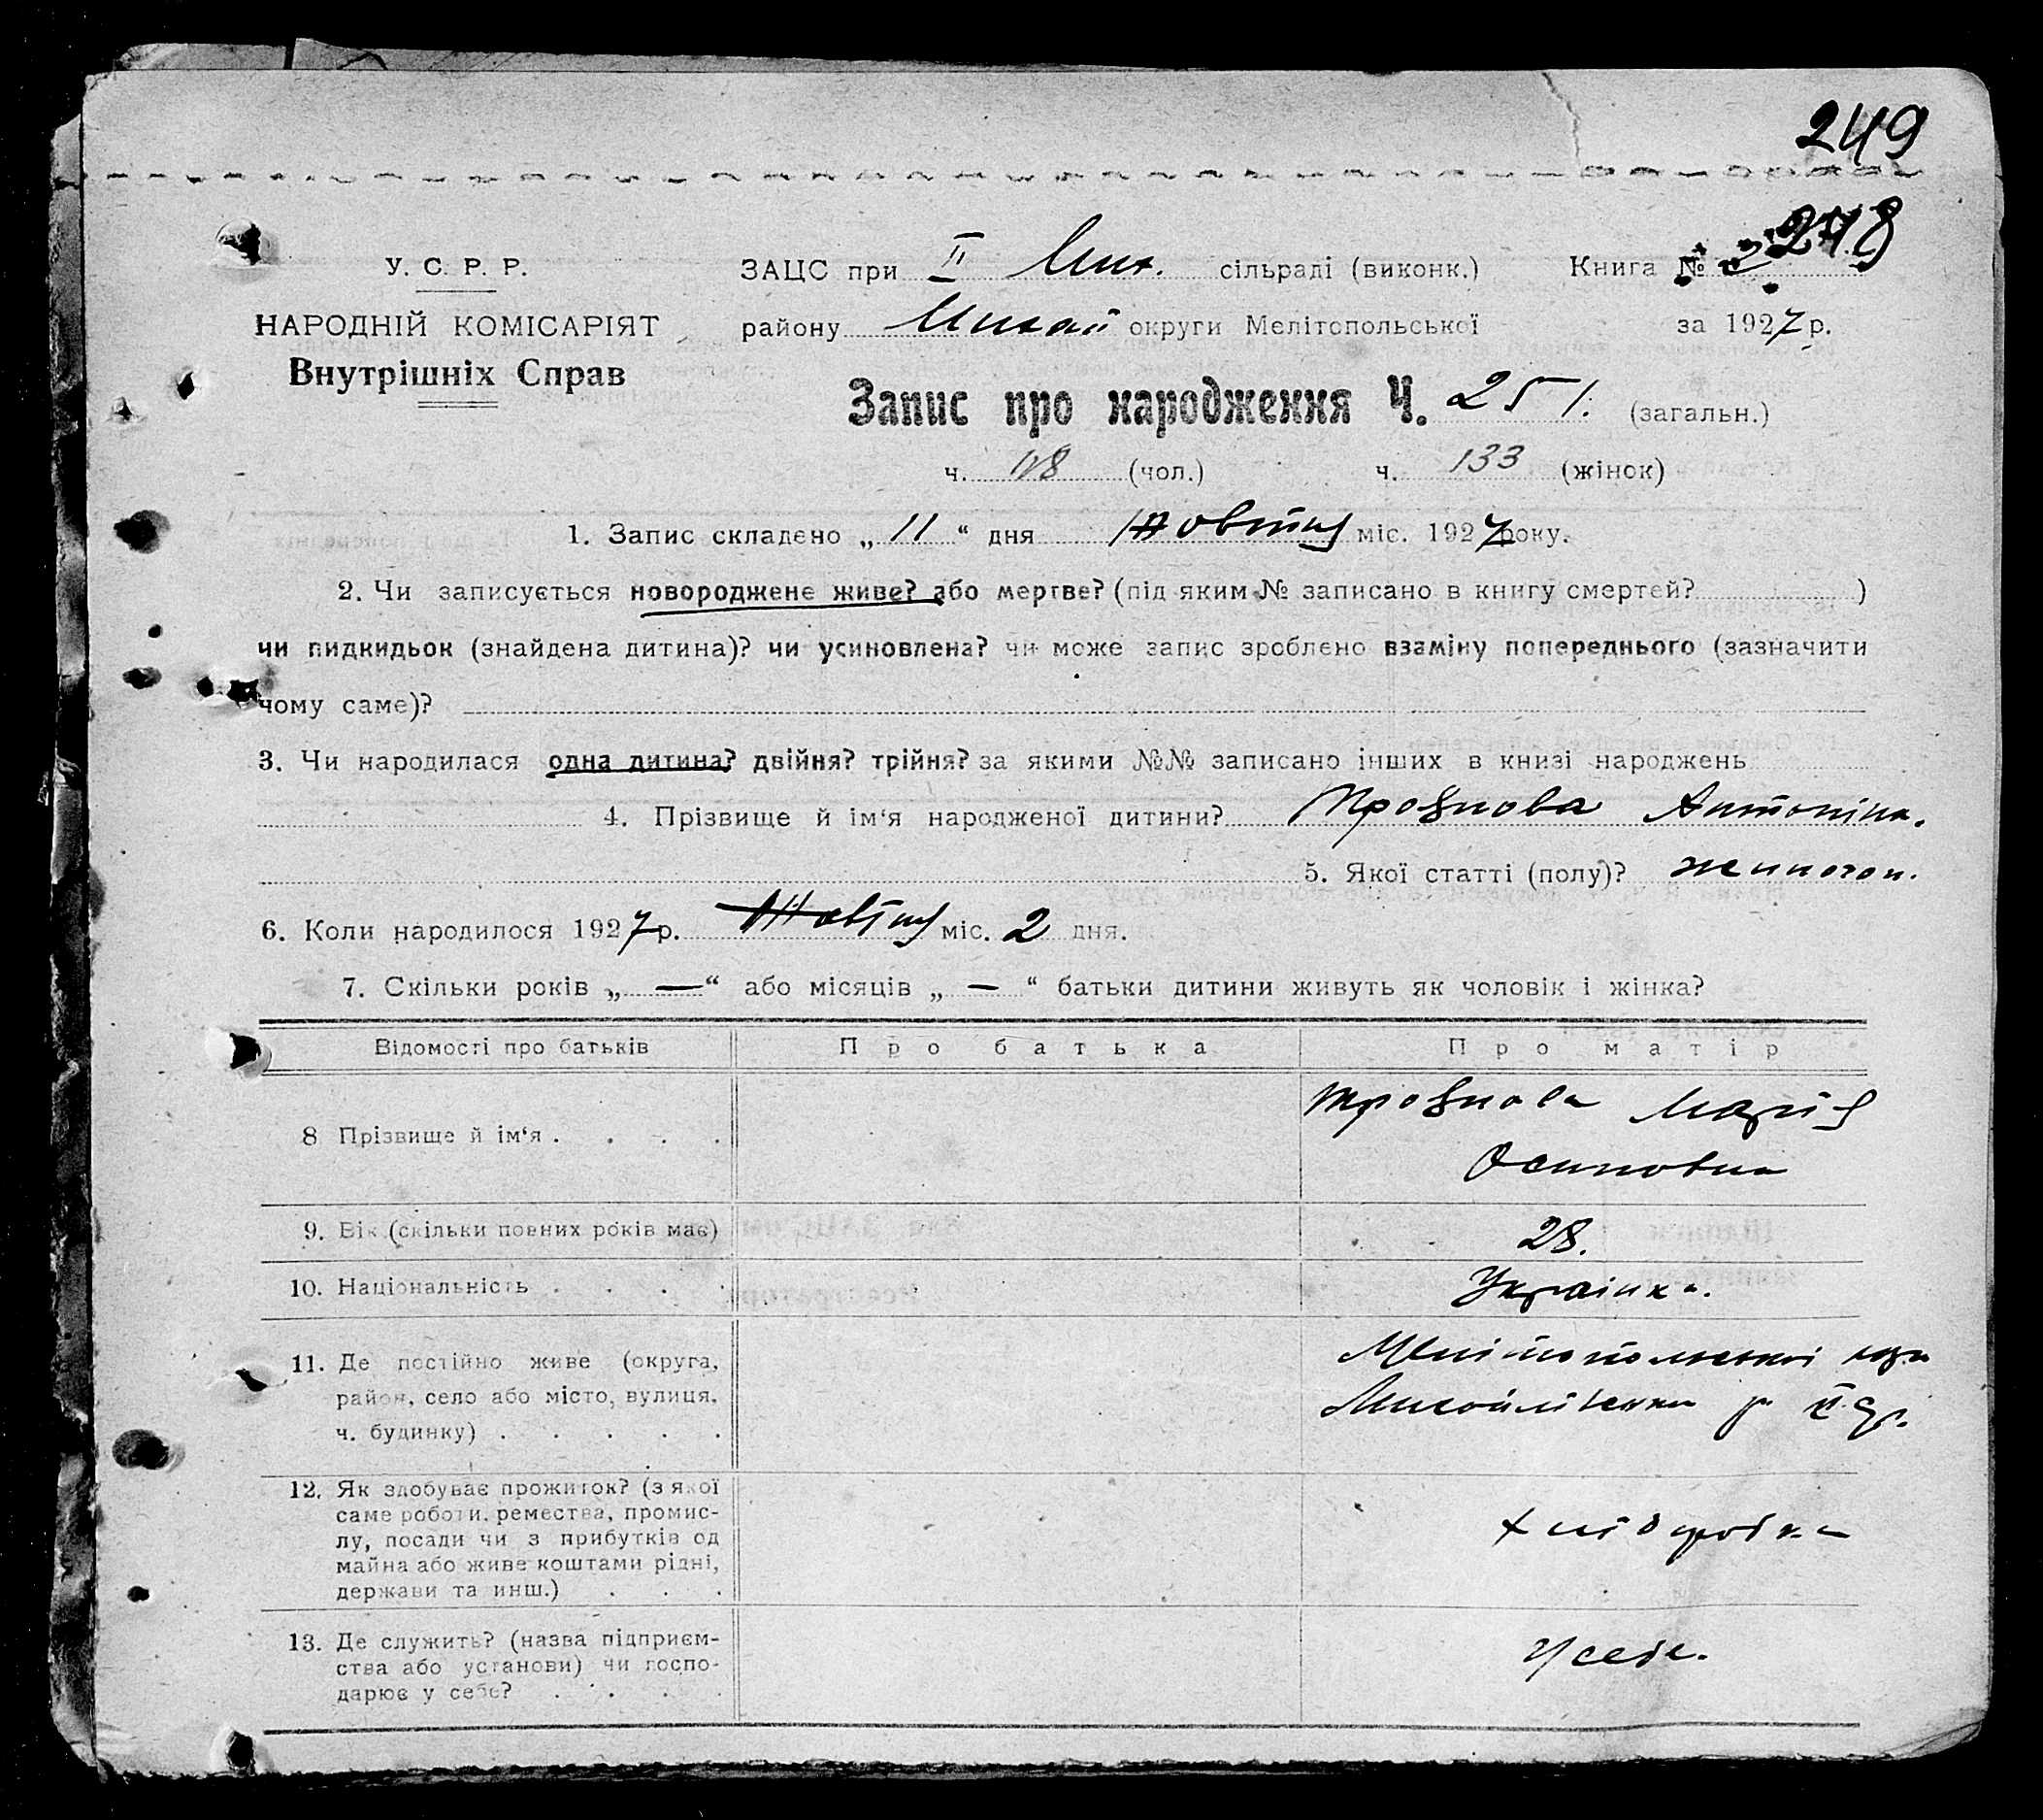 249
У. С. Р. Р.
ЗАЦС при II Мих. сільраді (виконк.) Книга № 248
НАРОДНІЙ КОМІСАРІЯТ
району Михай округи Мелітопольської за 1927 р.
Внутрішніх Справ
Запис про народження Ч. 251. (загальн.)
ч. 118 (чол.) ч. 133 (жінок)
1. Запис складено „ 11 “ дня Жовтня міс. 1927 року.
2. Чи записується новороджене живе? або мертве? (під яким № записано в книгу смертей? )
чи пидкидьок (знайдена дитина)? чи усиновлена? чи може запис зроблено взаміну попереднього (зазначити
чому саме)?
3. Чи народилася одна дитина? двійня? трійня? за якими №№ записано інших в книзі народжень
4. Прізвище й ім‘я народженої дитини? Антоніна.
5. Якої статті (полу)?
6. Коли народилося 1927 р. Жовтня міс. 2 дня.
7. Скільки років „ — “ або місяців „ — “ батьки дитини живуть як чоловік і жінка?
Відомості про батьків Про батька Про матір
Марія
8 Прізвище й ім‘я . . . .
Осиповна
9. Вік (скільки повних років має) 28.
10. Національність . . . . Українка.
11. Де постійно живе (округа, Мелітопольської
район, село або місто, вулиця, Михайлівський р.
ч. будинку) . . . . .
12. Як здобуває прожиток? (з якої
саме роботи, ремества, промис-
лу, посади чи з прибутків од хліборобка
майна або живе коштами рідні,
держави та инш.) . . .
13. Де служить? (назва підприєм- У себе.
ства або установи) чи госпо-
дарює у себе? . . . .